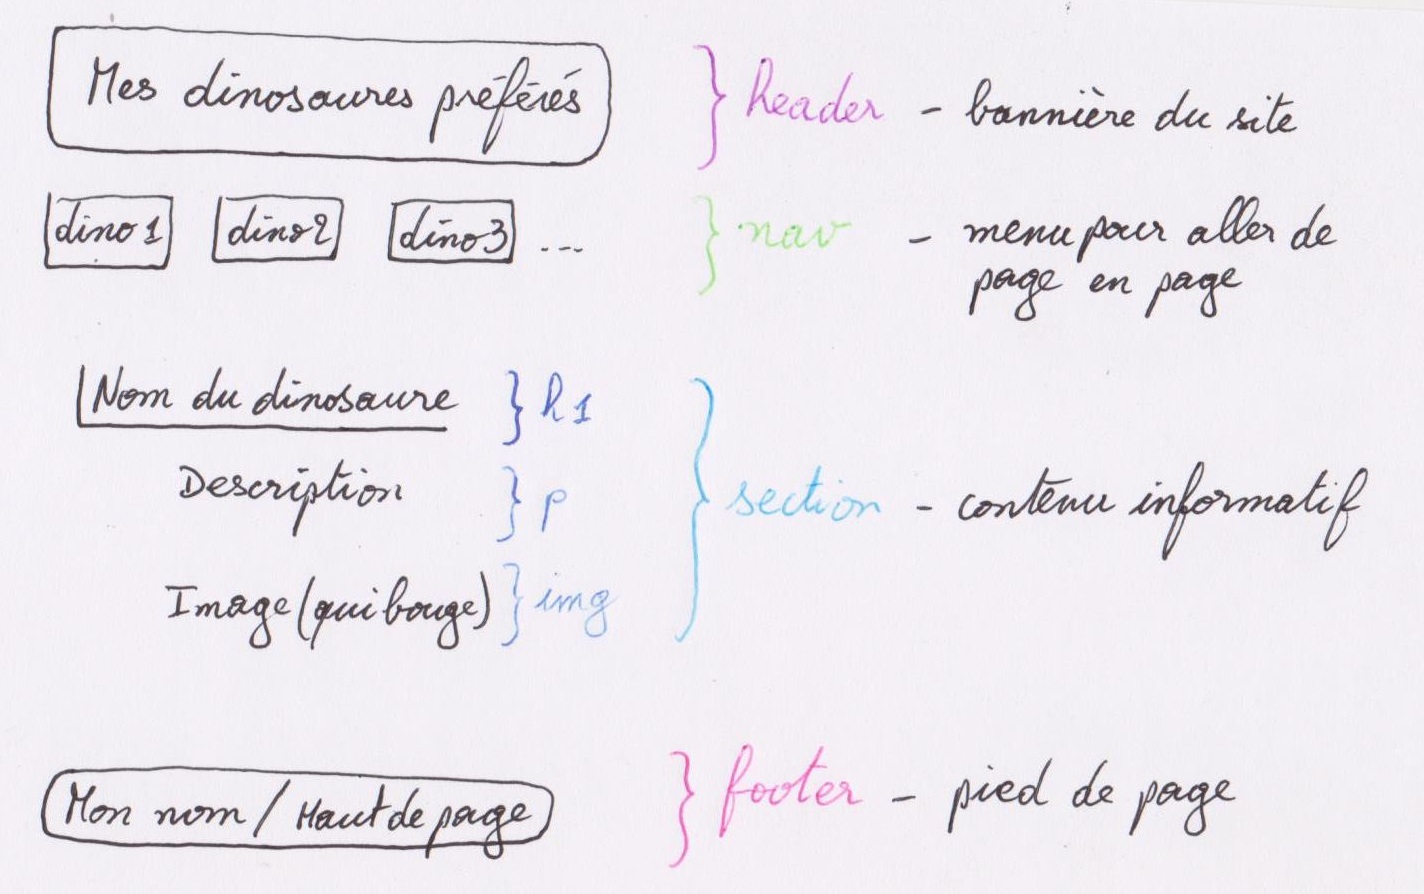 Mes dinosaures préférés } header - bannière du site
dino1 dino2 dino3 ... } nav - menu pour aller de
page en page
Nom du dinosaure } h1
Description } p
} section - contenu informatif
Image (qui bouge) } img
Mon nom / Haut de page } footer - pied de page